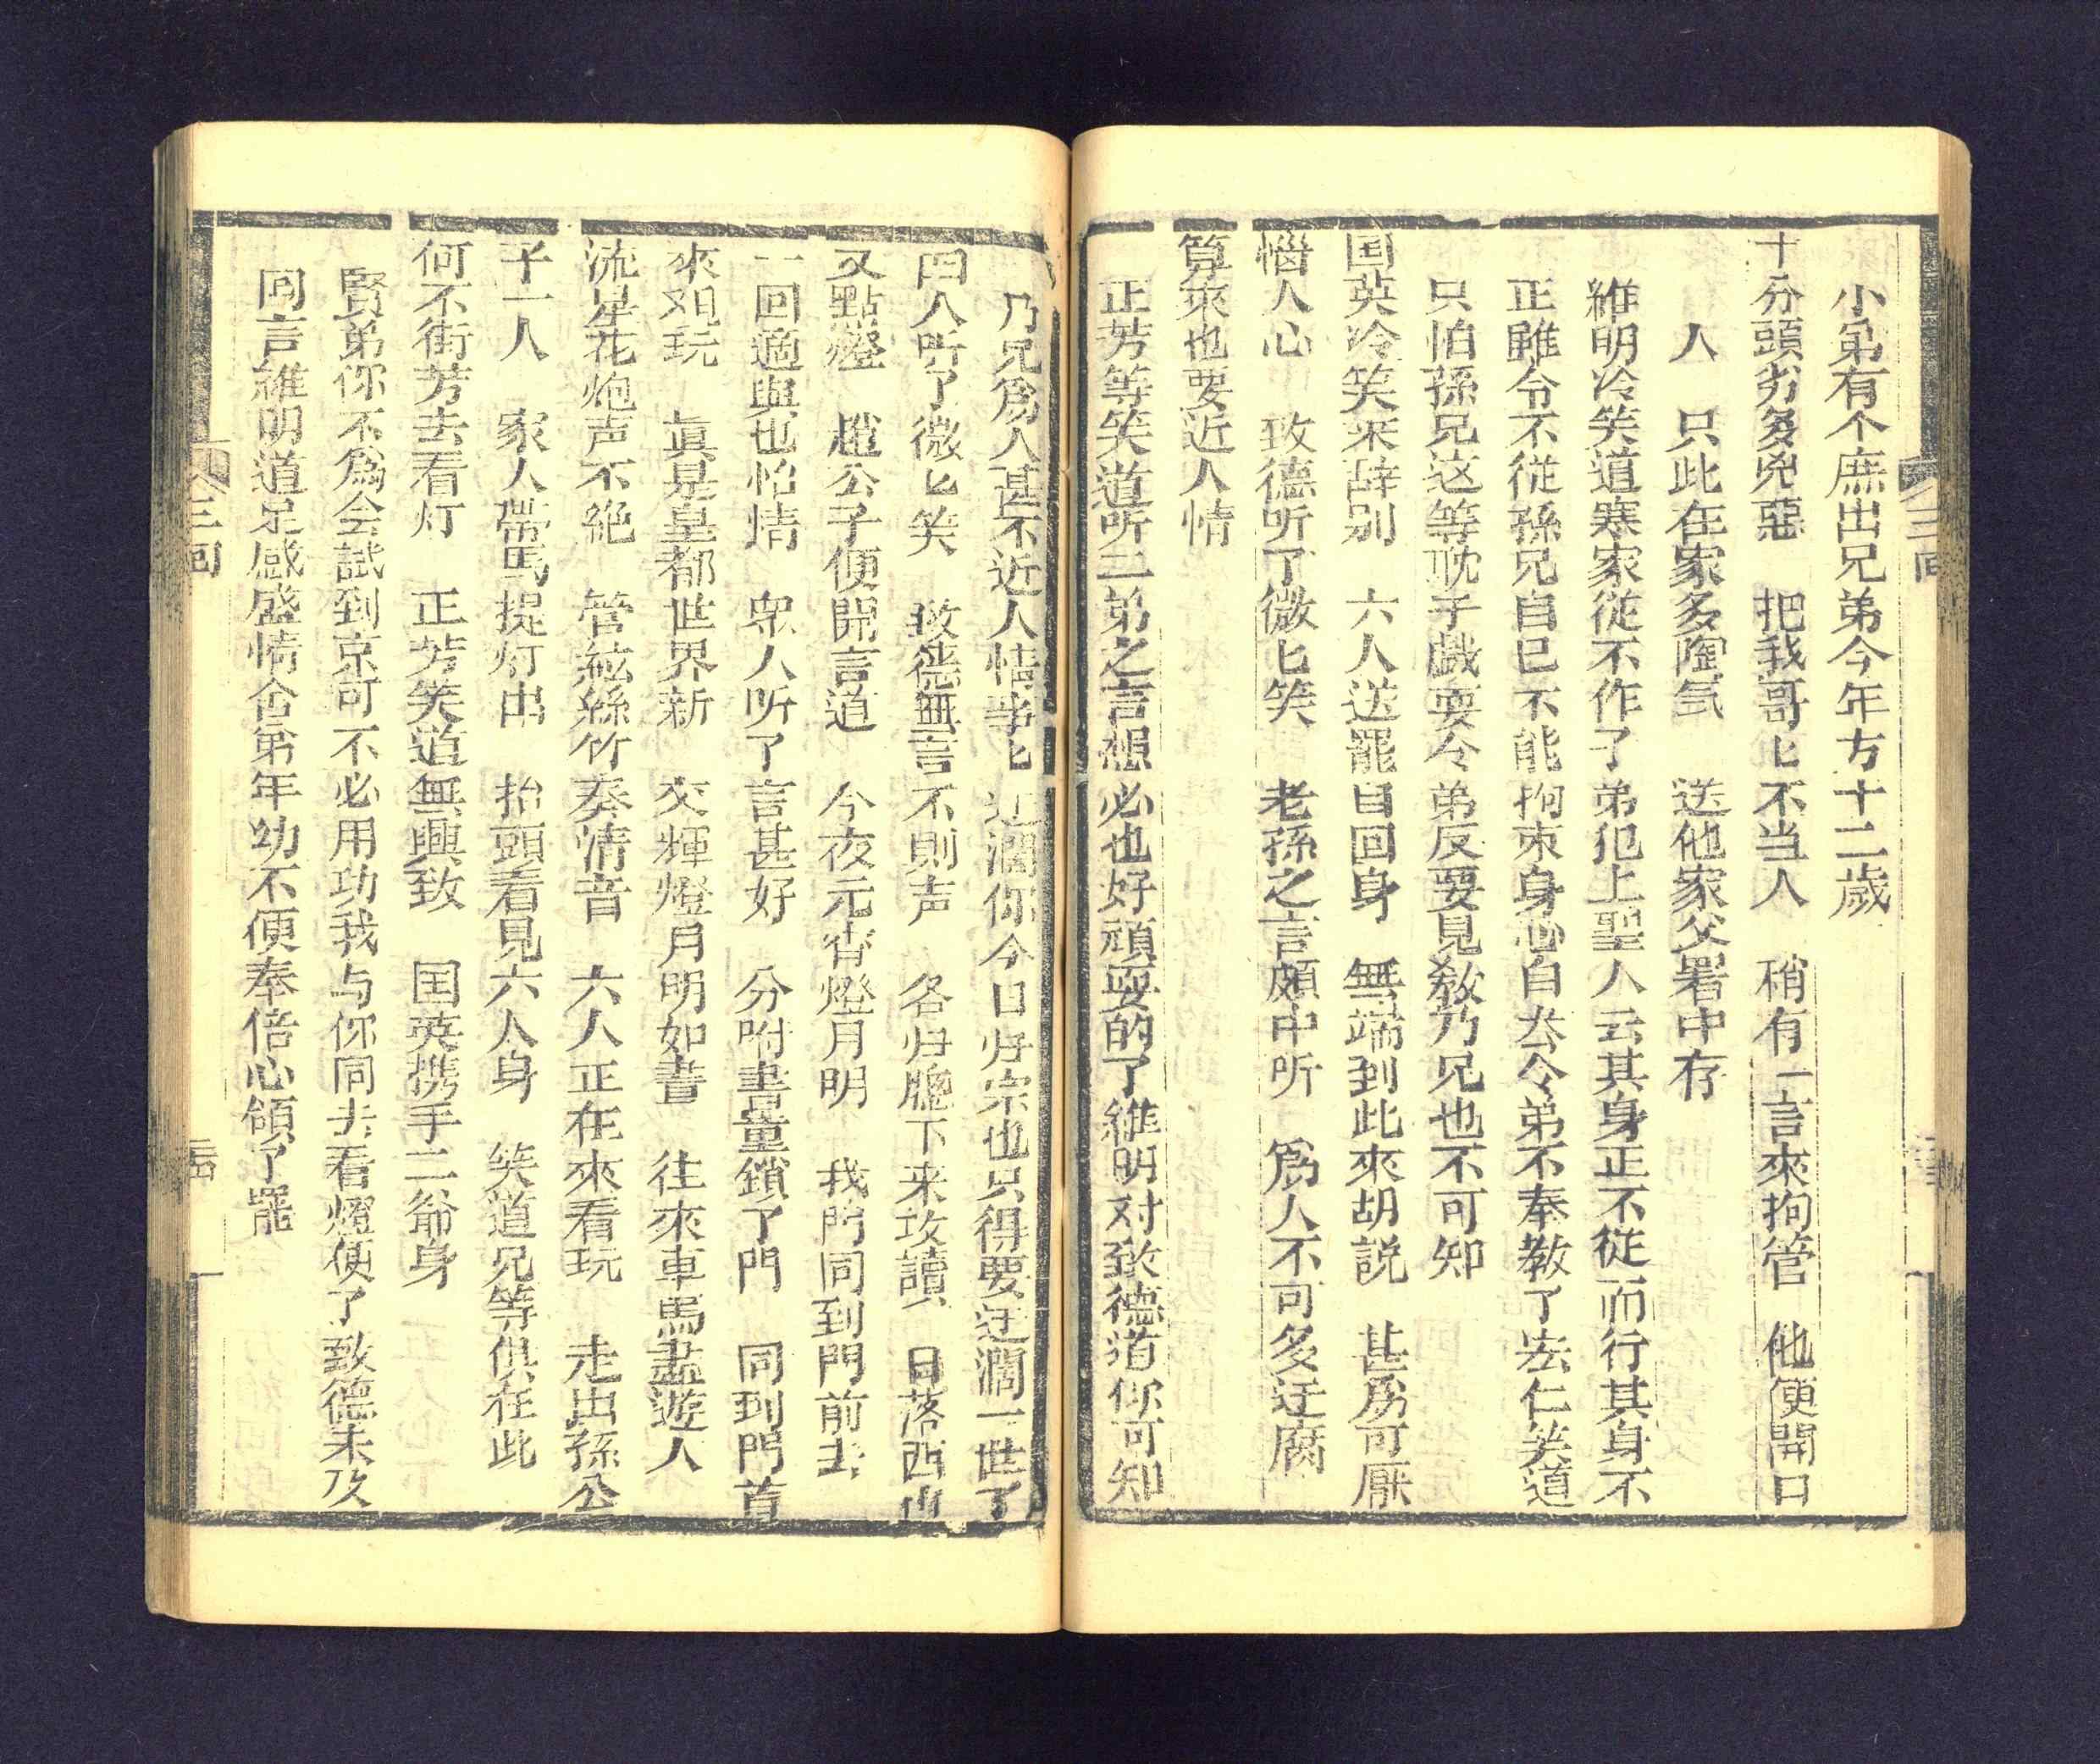 小弟有个庶出兄弟今年方十二歲
十分頭劣多兇惡　把我哥匕不当人　稍有一言來拘管　他便開口
人　只此在家多陶氣　送他家父署中存
維明冷笑道寒家従不作了弟犯上聖人云其身正不從而行其身不
正雖令不從孫兄自已不能拘束身心自厺令弟不奉教了法仁笑道
只怕孫兄这等耽子戲耍令弟反要見教乃兄也不可知
国英冷笑来辞别　六人送罷自回身　無端到此來胡説　甚爲可厭
惱人心　致德听了微匕笑　老孫之言頗中听　爲人不可多迂腐
算來也要近人情
正芳等笑道听二弟之言想必也好頑耍的了維明对致德道你可知
乃兄爲人甚不近人情事匕迂濶你今日归宗也只得要迂濶一世了
四人听了微匕笑　致德無言不則声　各归牕下来攻讀　日落西山
又點燈　趙公子便開言道　今夜元宵燈月明　我門同到門前去
一回適興也怡情　衆人听了言甚好　分咐書童鎖了門　同到門首
來观玩　真是皇都世界新　交輝燈月明如晝　往來車馬盡遊人
流星花炮声不絶　管絃絲竹奏情音　六人正在來看玩　走出孫公
子一人　家人帶馬提灯出　抬頭看見六人身　笑道兄等俱在此
何不街芳去看灯　正芳笑道無興致　国英携手二爺身
賢弟你不爲会試到京可不必用功我与你同去看燈便了致德未及
回言維明道足感盛情舍弟年幼不便奉倍心領了罷
三回
三回